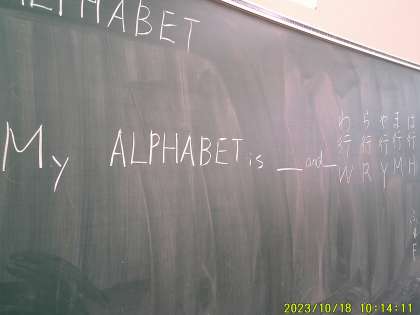 ALPHABET
My ALPHABET is __ and __
わ行 W
ら行 R
や行 Y
ま行 M
は行 H
2023/10/18 10:14:11